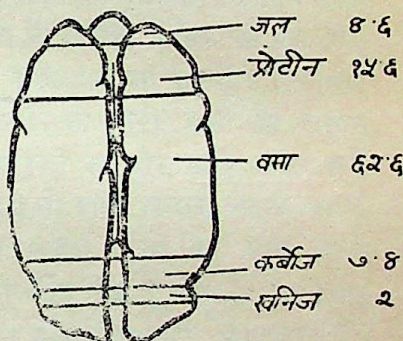 जल ४·६
प्रोटीन १५·६
वसा ६२·६
कर्बोज ७·४
खनिज २